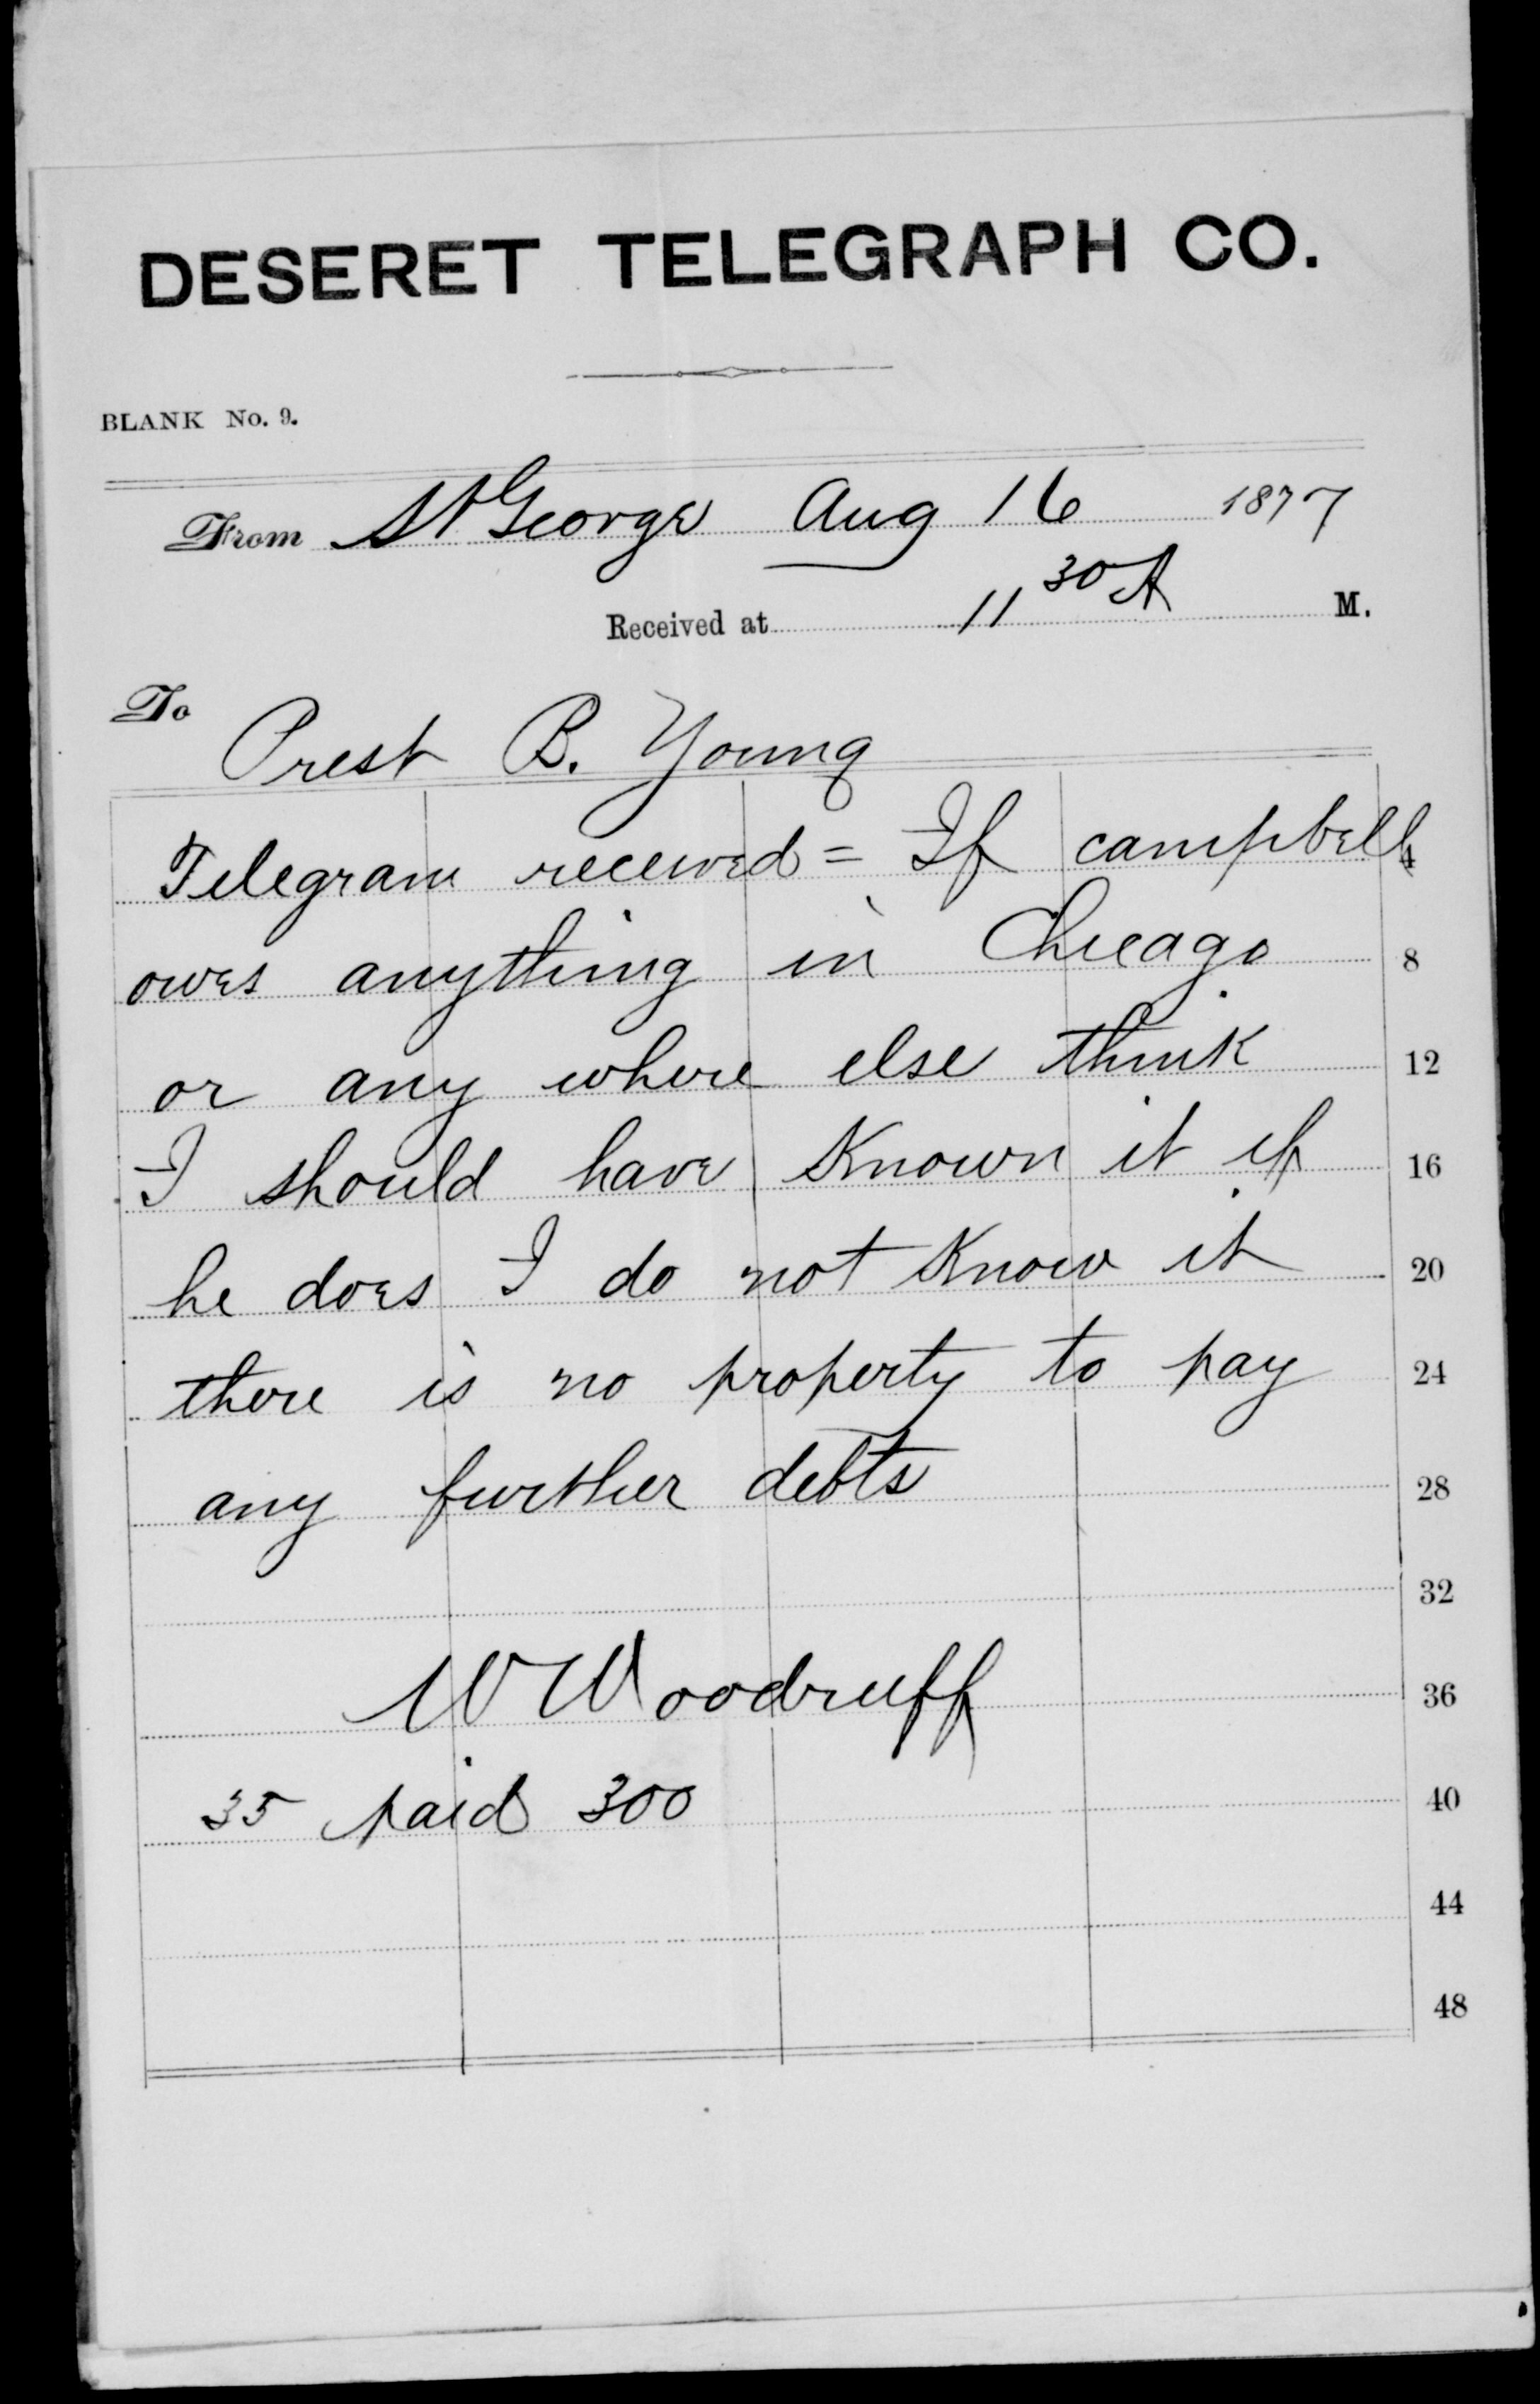 DESERET TELEGRAPH CO.
BLANK No. 9.
From St George Aug 16 1877
Received at 11 30 A M.
To
Prest B. Young
Telegram received = If campbell 4
owes anything in Chicago 8
or any where else think 12
I should have Known it if 16
he does I do not Know it 20
there is no property to pay 24
any further debts 28
32
W Woodruff 36
35 paid 300 40
44
48